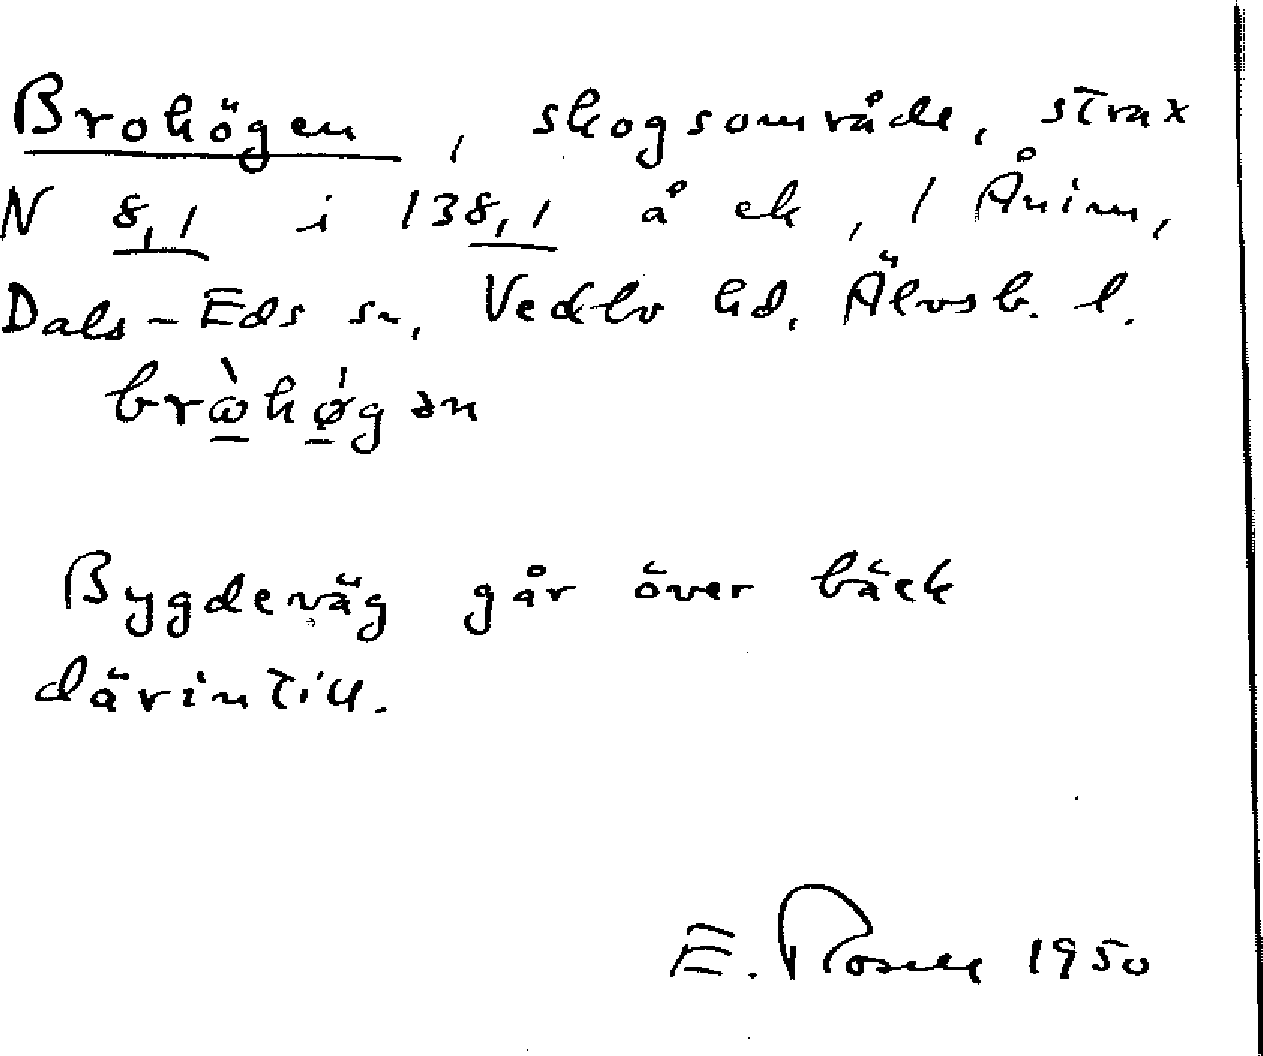 Brohögen, skogsområde, strax
N 8,1 i 138,1 å ek, 1 Ånim,
Dals-Eds sn, Vedbo hd, Älvsb. l.
brὼhø̀́gən
Bygdeväg går över bäck
därintill.
E. Rosell 1950